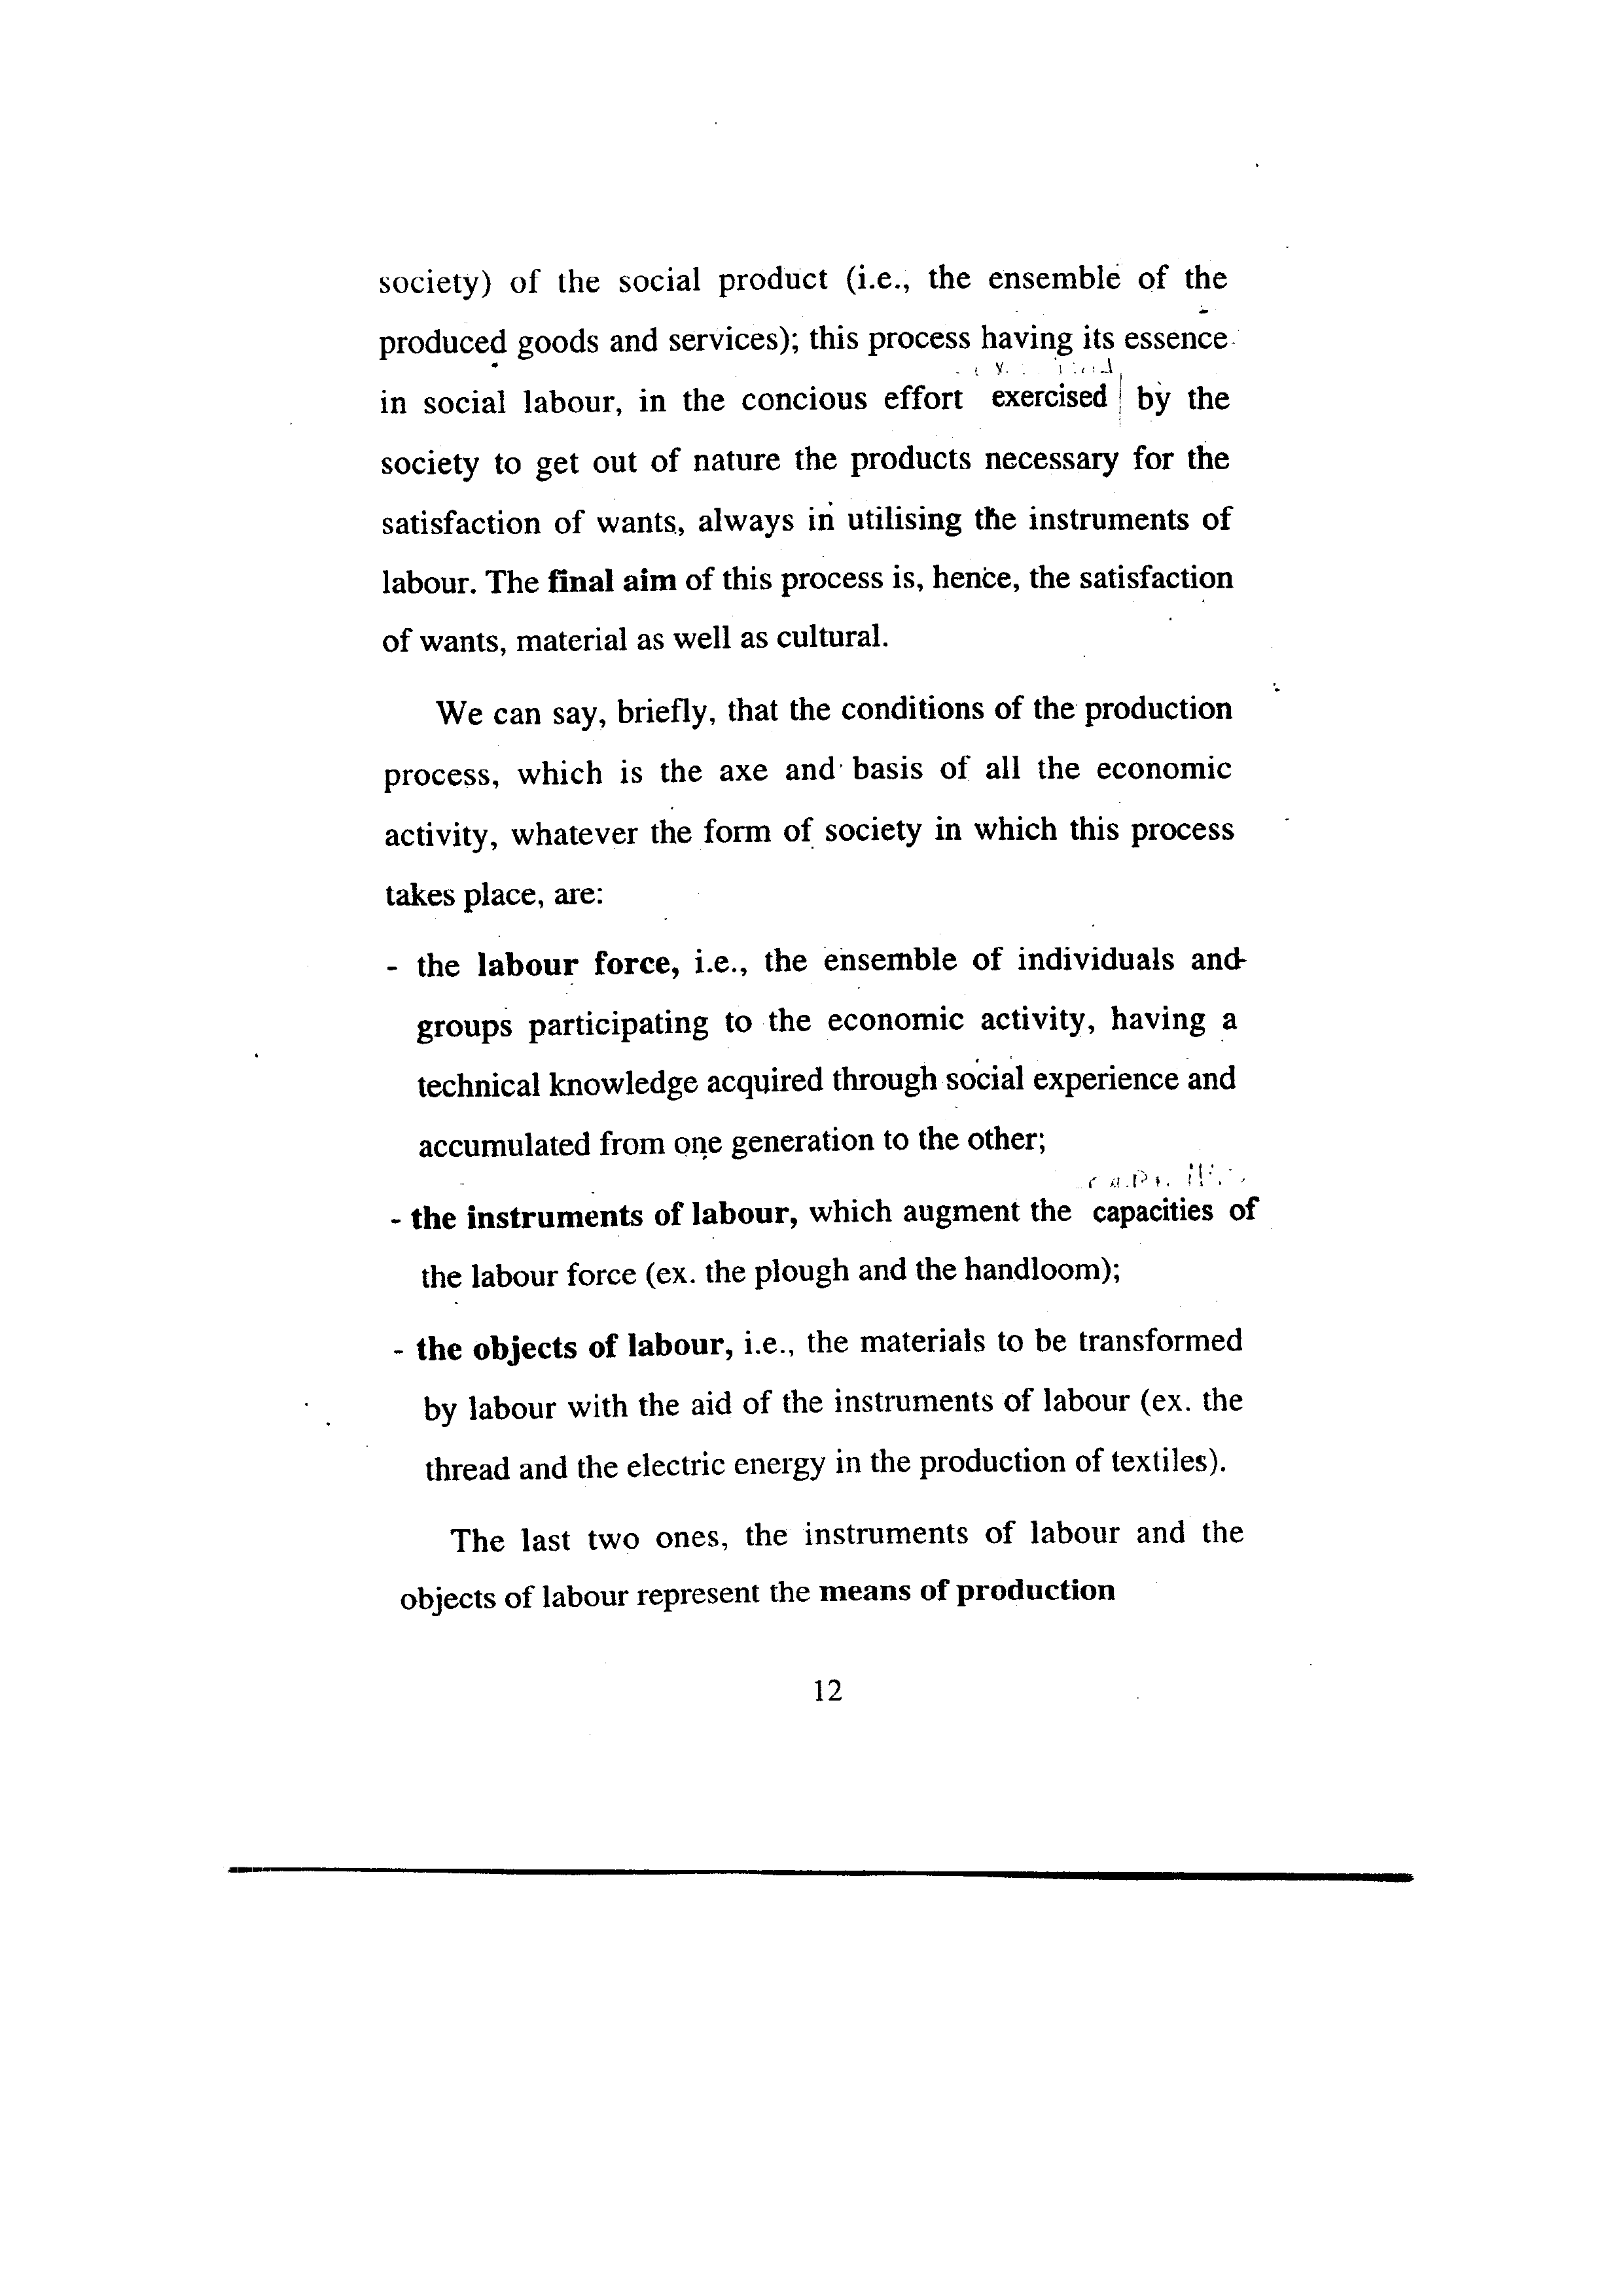 society) of the social product (i.e., the ensemble of the
produced goods and services); this process having its essence
in social labour, in the concious effort exercised by the
society to get out of nature the products necessary for the
satisfaction of wants, always in utilising the instruments of
labour. The final aim of this process is, hence, the satisfaction
of wants, material as well as cultural.
We can say, briefly, that the conditions of the production
process, which is the axe and basis of all the economic
activity, whatever the form of society in which this process
takes place, are:
- the labour force, i.e., the ensemble of individuals and
groups participating to the economic activity, having a
technical knowledge acquired through social experience and
accumulated from one generation to the other;
- the instruments of labour, which augment the capacities of
the labour force (ex. the plough and the handloom);
- the objects of labour, i.e., the materials to be transformed
by labour with the aid of the instruments of labour (ex. the
thread and the electric energy in the production of textiles).
The last two ones, the instruments of labour and the
objects of labour represent the means of production
12